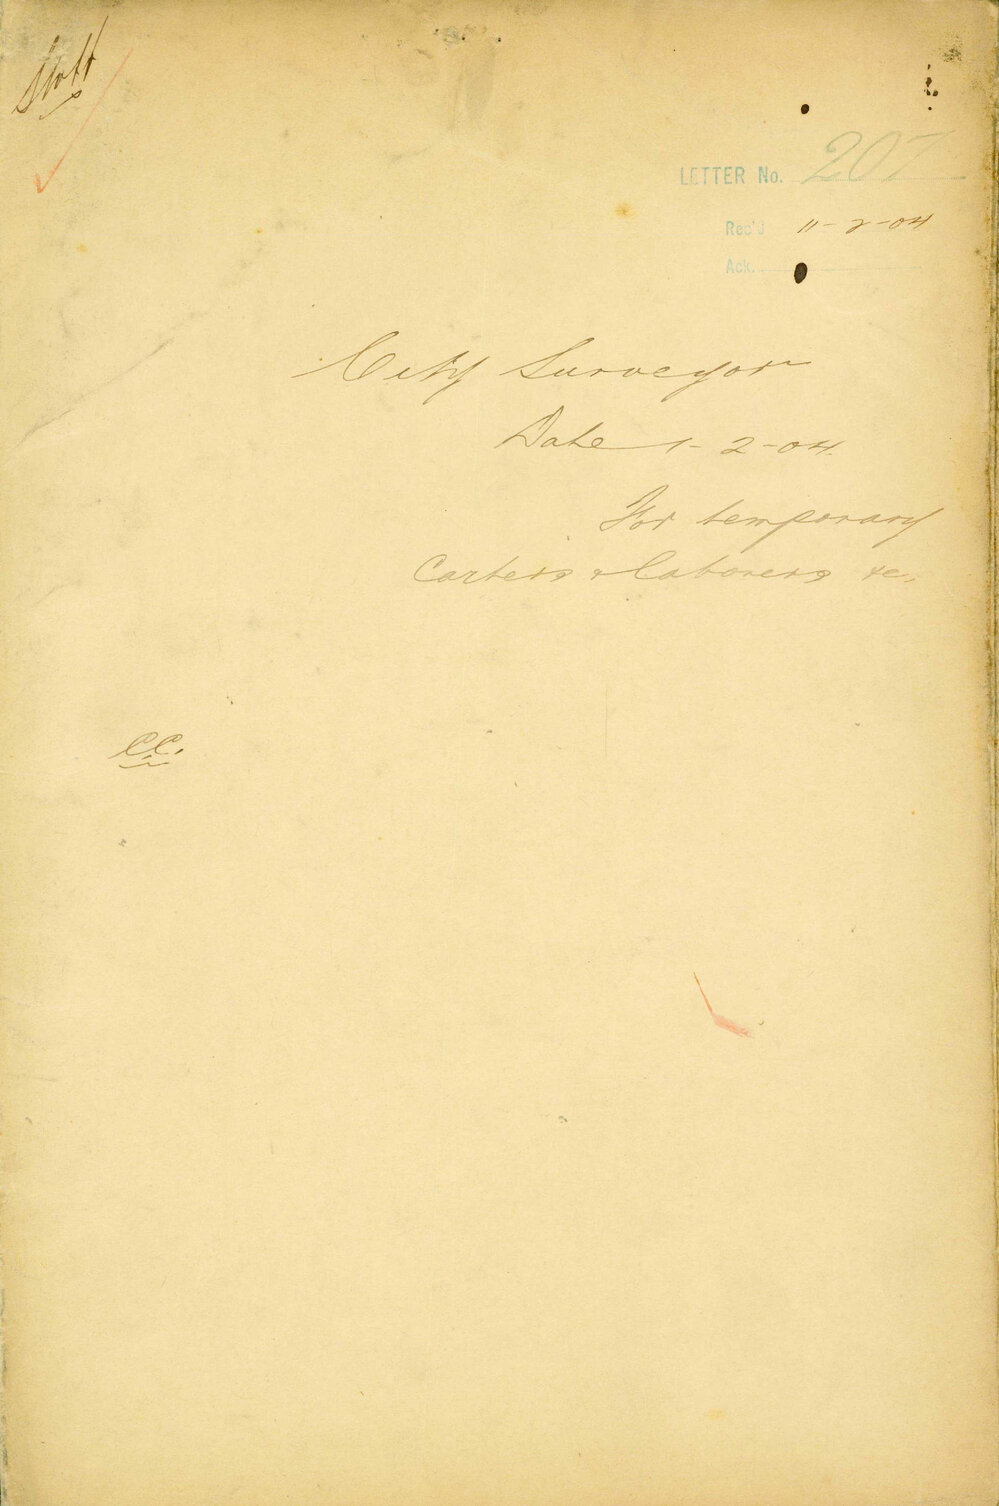 Staff
LETTER No. 207
Rec'd 11-2-04
Ack.
City Surveyor
Date 1-2-04.
For temporary
Carters & Laborers &c.
C.C.